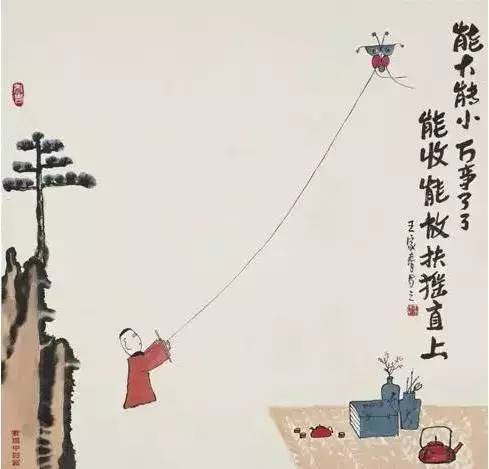 能大能小万事了了
能收能放扶摇直上
王家春写之